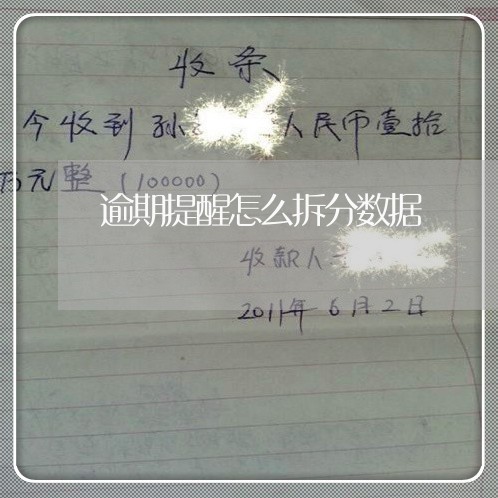 收条
今收到孙 人民币壹拾
万元整（100000）
逾期提醒怎么拆分数据
收款人
2011年6月2日